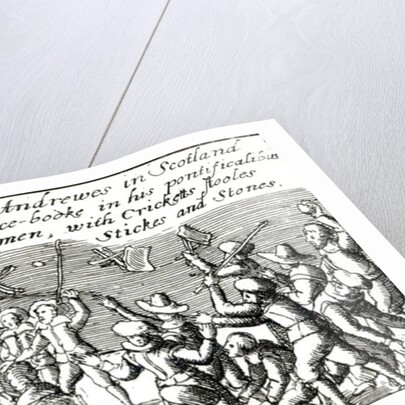 Andrewes in Scotland
ce-booke in his pontificalibus
men, with Cricketts stooles
Stickes and Stones.